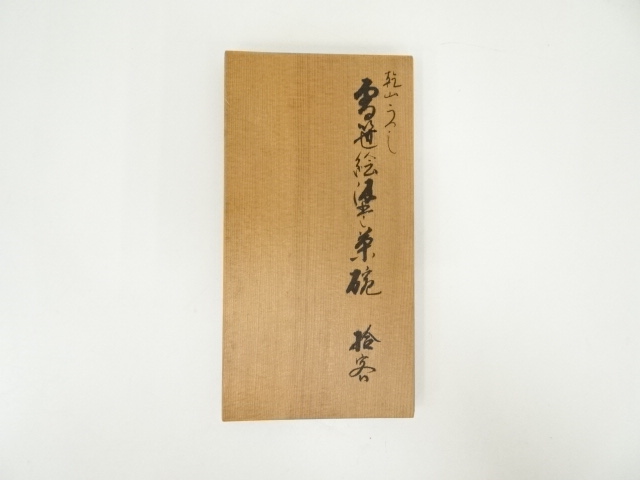 乾山うつし
雪笹絵汲出し茶碗 拾客